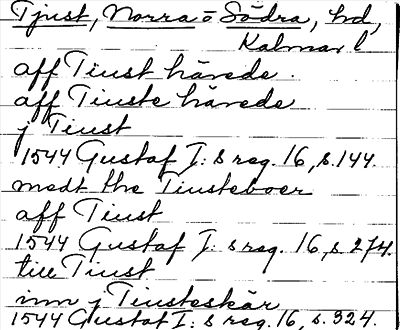 Tjust, Norra o Södra, hd,
Kalmar l
aff Tiust härede.
aff Tiuste härede
j Tiust
1544 Gustaf I:s reg. 16, s. 144.
medt the Tiusteboer
aff Tiust
1544 Gustaf I:s reg. 16, s. 274.
till Tiust
inn j Tiusteskär
1544 Gustaf I:s reg. 16, s. 324.